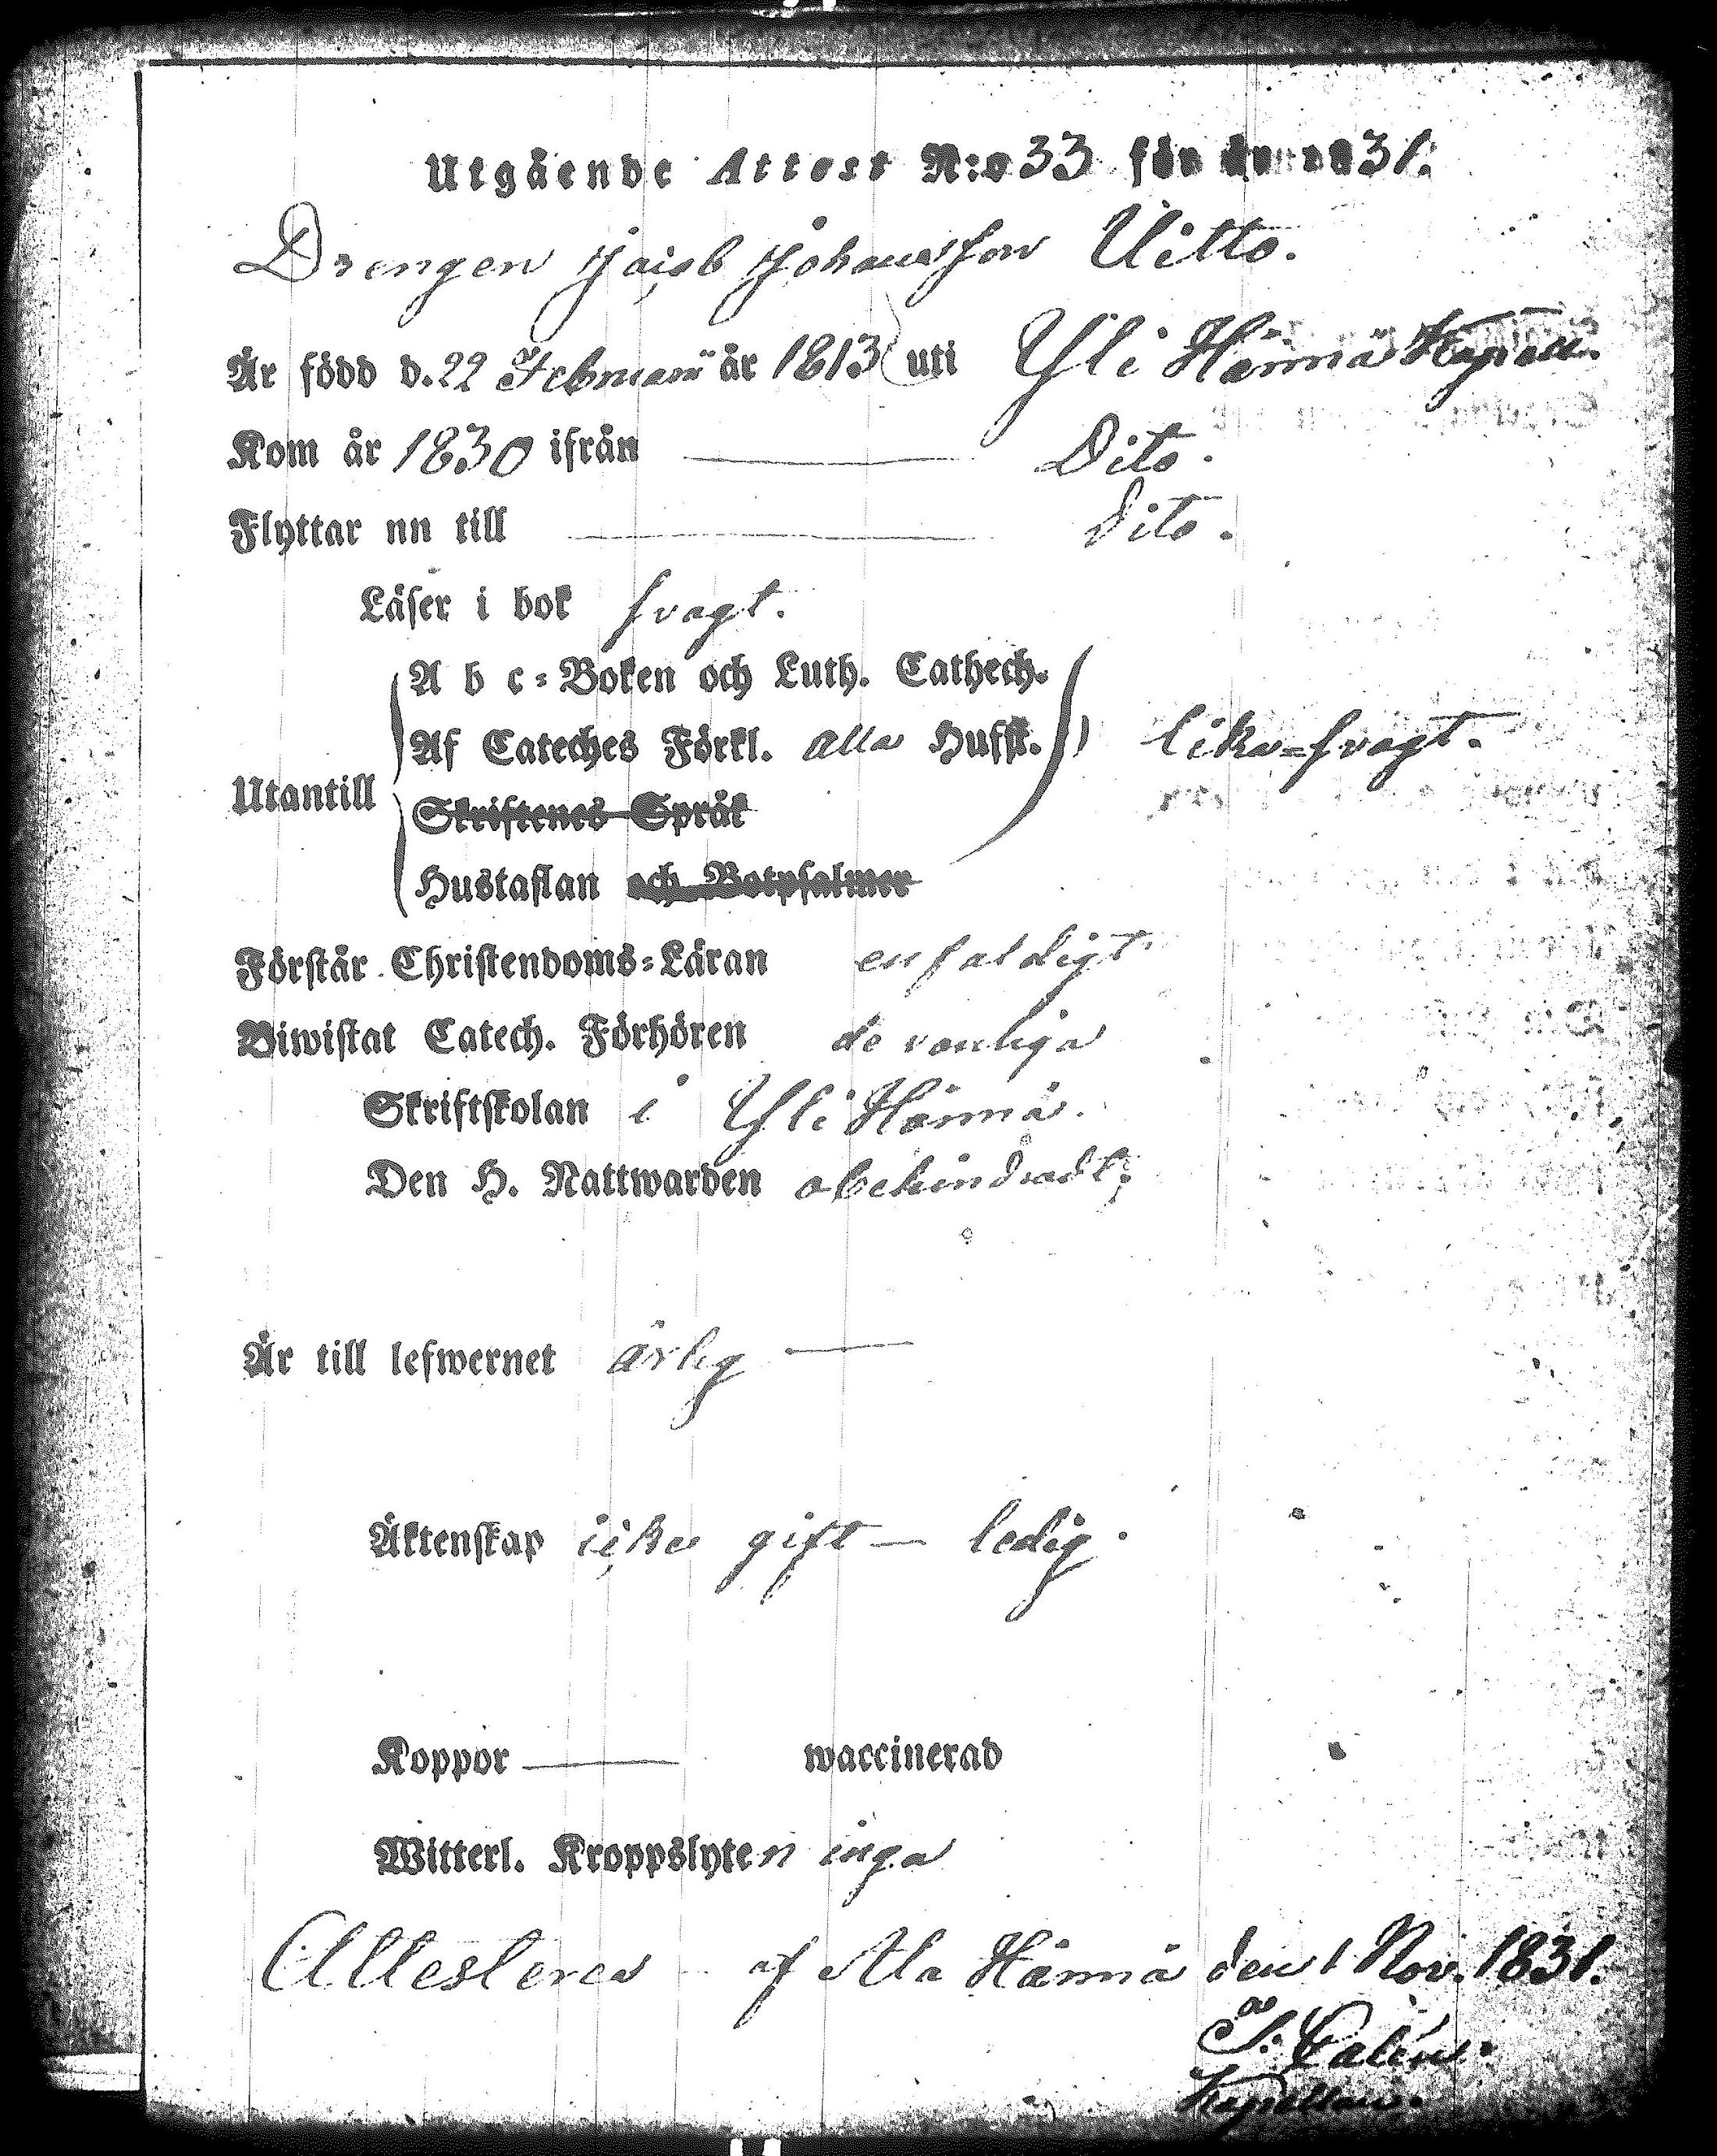 Utgående Attest N:o 33 för år 1831.
Drengen Jacob Johansson Uitto.
Är född d. 22 Februarii år 1813 uti Yli Härmä Kapell.
Kom år 1830 ifrån — Dito.
Flyttar nu till — Dito.
Läser i bok svagt.
A b c=Boken och Luth. Cathech.
Af Cateches Förkl. alla Hufst. lika svagt.
Utantill
Skriftenes Språk
Hustaflan och Botpsalmer
Förstår Christendoms=Läran enfaldigt
Biwistat Catech. Förhören de vanliga
Skriftskolan i Yli Härmä.
Den H. Nattwarden obehindradt;
Är till lefwernet ärlig —
Äktenskap icke gift — ledig.
Koppor — waccinerad
Witterl. Kroppslyten inga
Attesteras af Ala Härmä den 1 Nov. 1831.
Kapellan.